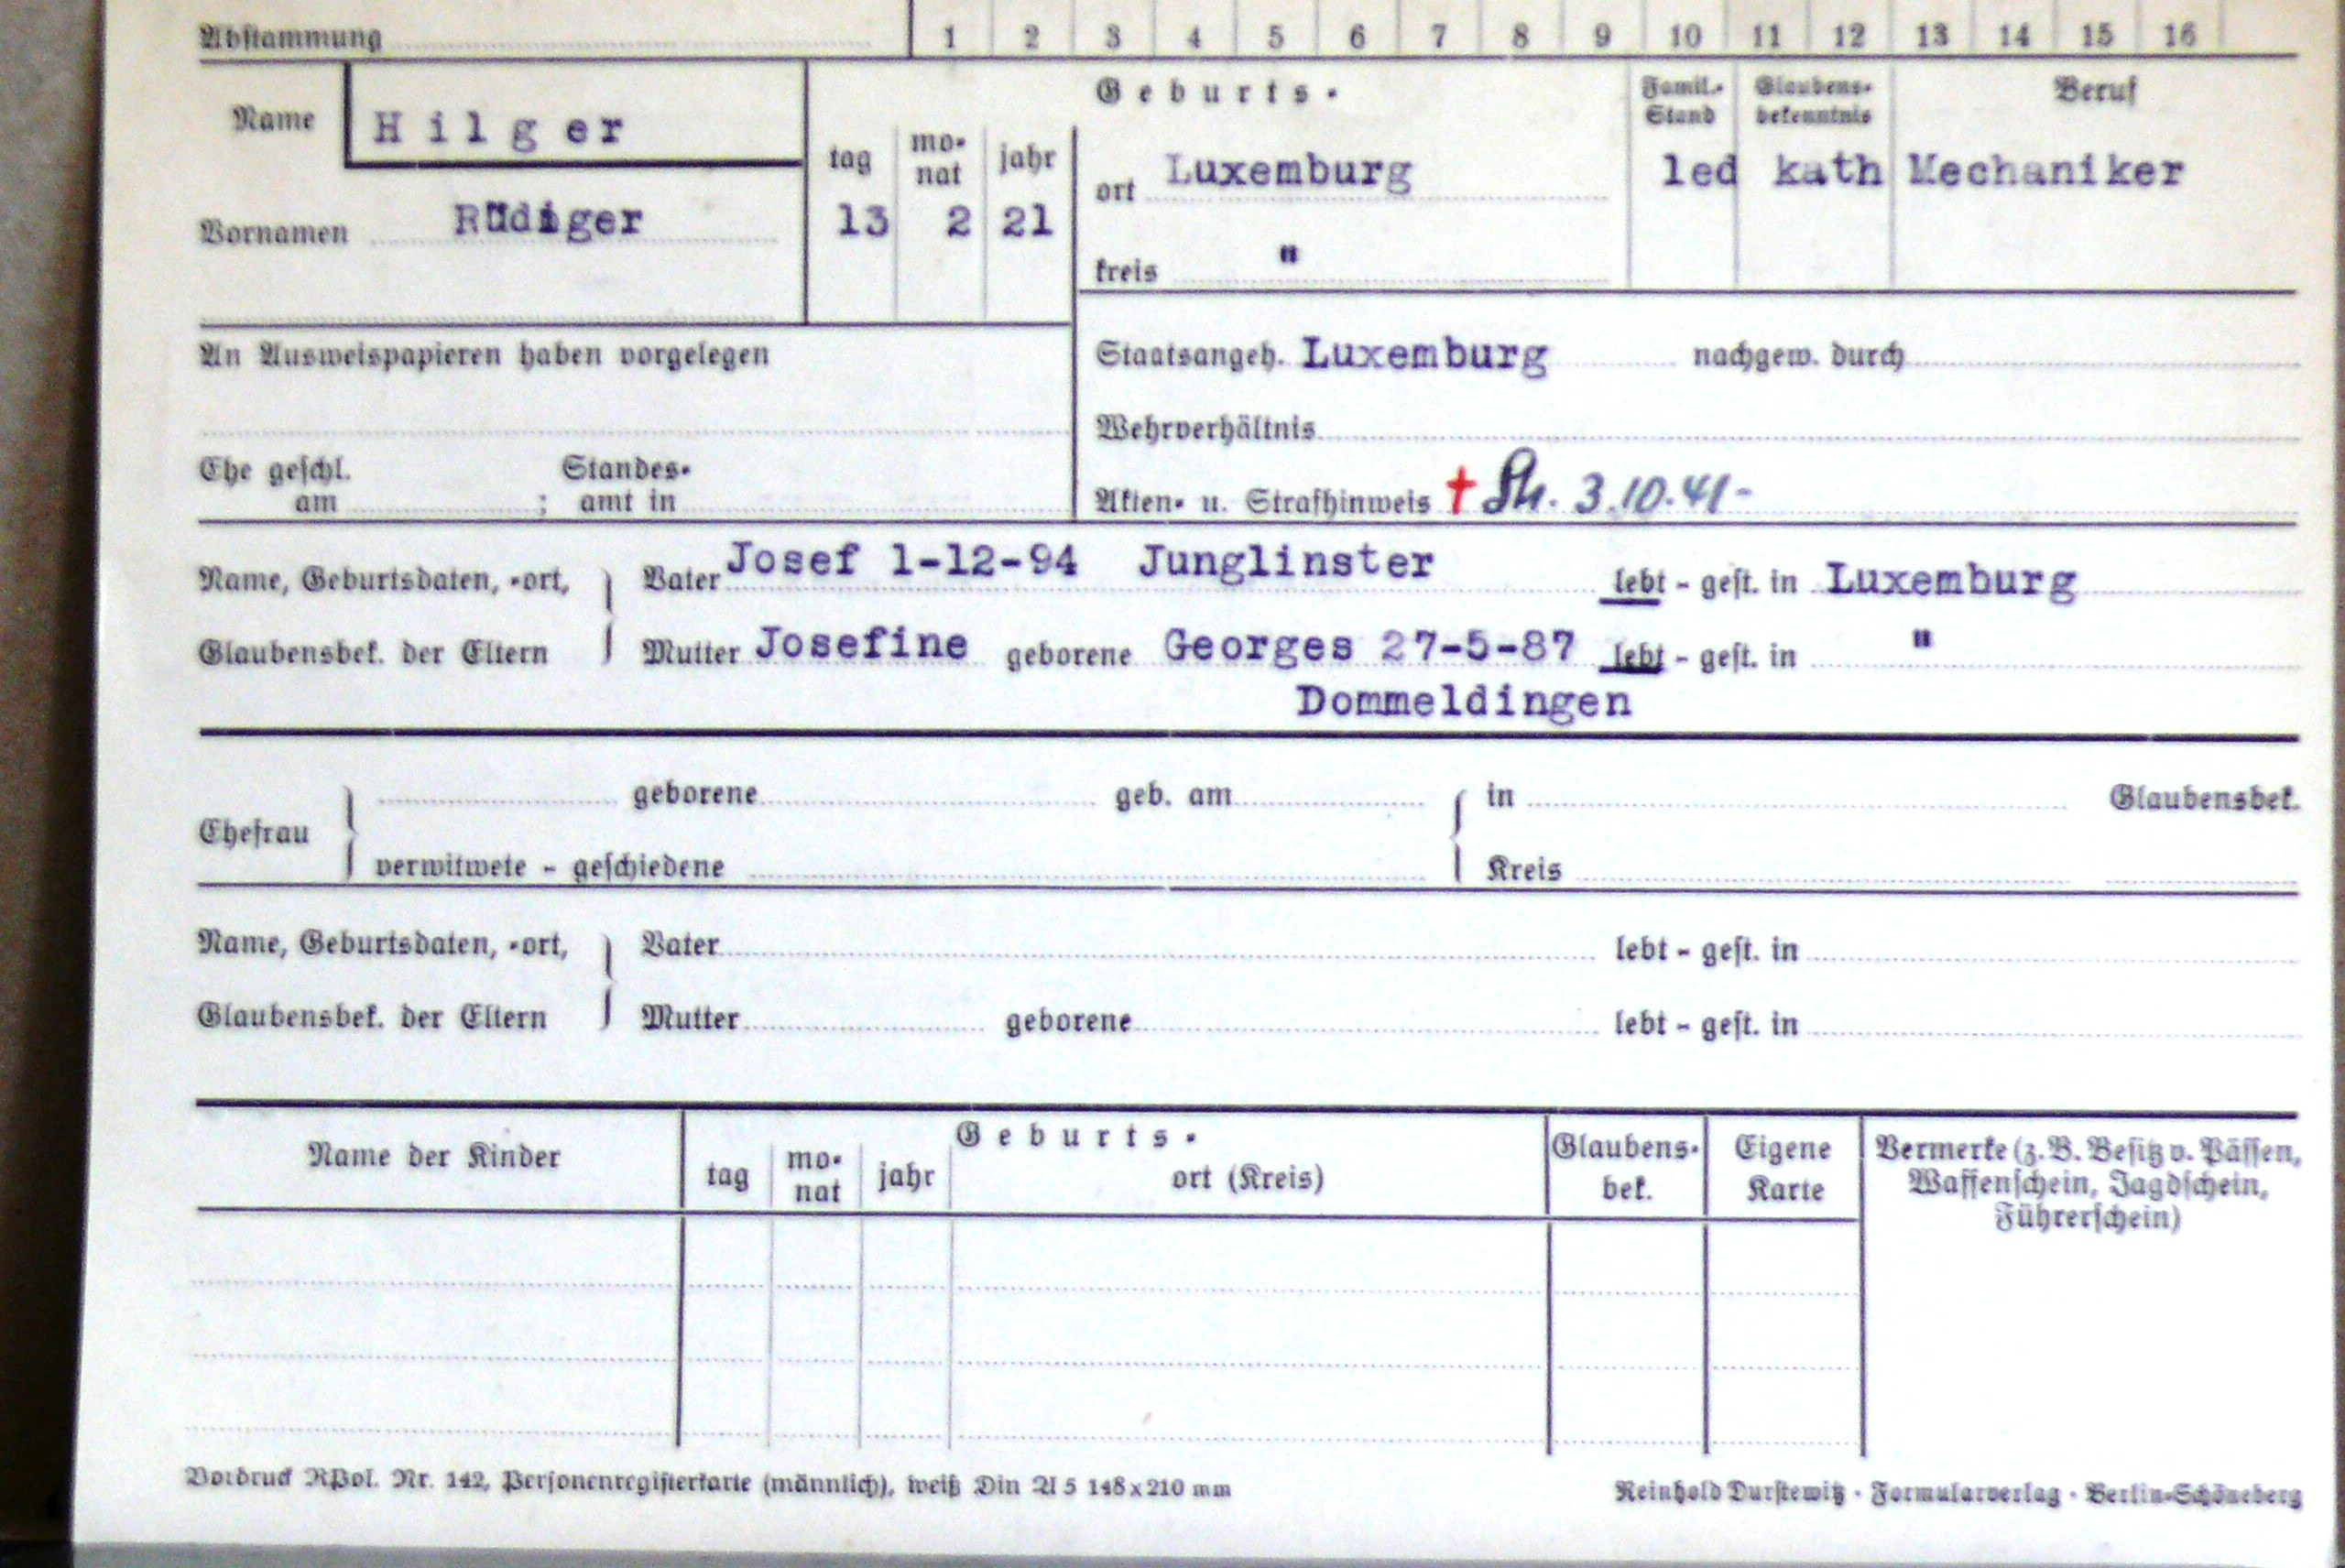 Abstammung 1 2 3 4 5 6 7 8 9 10 11 12 13 14 15 16
Name Hilger
Vornamen Rüdiger
Geburts-
tag mo-nat jahr
13 2 21
ort Luxemburg
kreis "
Famil.-Stand
led
Glaubens-bekenntnis
kath
Beruf
Mechaniker
An Ausweispapieren haben vorgelegen
Staatsangeh. Luxemburg nachgew. durch
Wehrverhältnis
Ehe geschl. am ; Standes-amt in
Akten- u. Strafhinweis † 3.10.41-
Name, Geburtsdaten, -ort, Vater Josef 1-12-94 Junglinster lebt - gest. in Luxemburg
Glaubensbek. der Eltern Mutter Josefine geborene Georges 27-5-87 lebt - gest. in "
Dommeldingen
Ehefrau geborene geb. am in Glaubensbek.
verwitwete - geschiedene Kreis
Name, Geburtsdaten, -ort, Vater lebt - gest. in
Glaubensbek. der Eltern Mutter geborene lebt - gest. in
Name der Kinder
Geburts-
tag mo-nat jahr ort (Kreis)
Glaubens-bek.
Eigene Karte
Vermerke (z. B. Besitz v. Pässen,
Waffenschein, Jagdschein,
Führerschein)
Vordruck RPol. Nr. 142, Personenregisterkarte (männlich), weiß Din A 5 148x210 mm
Reinhold Durstewitz · Formularverlag · Berlin-Schöneberg